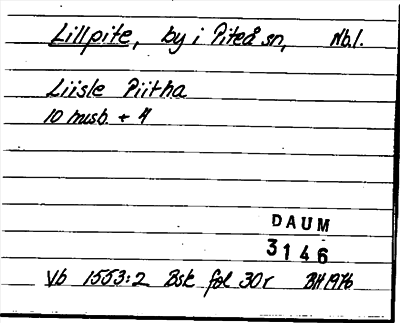 Lillpite, by i Piteå sn, Nb.l.
Liisle Piitha
10 husb. + 4
DAUM
3146
Vb 1553:2 Bsk fol 30r BH 1976